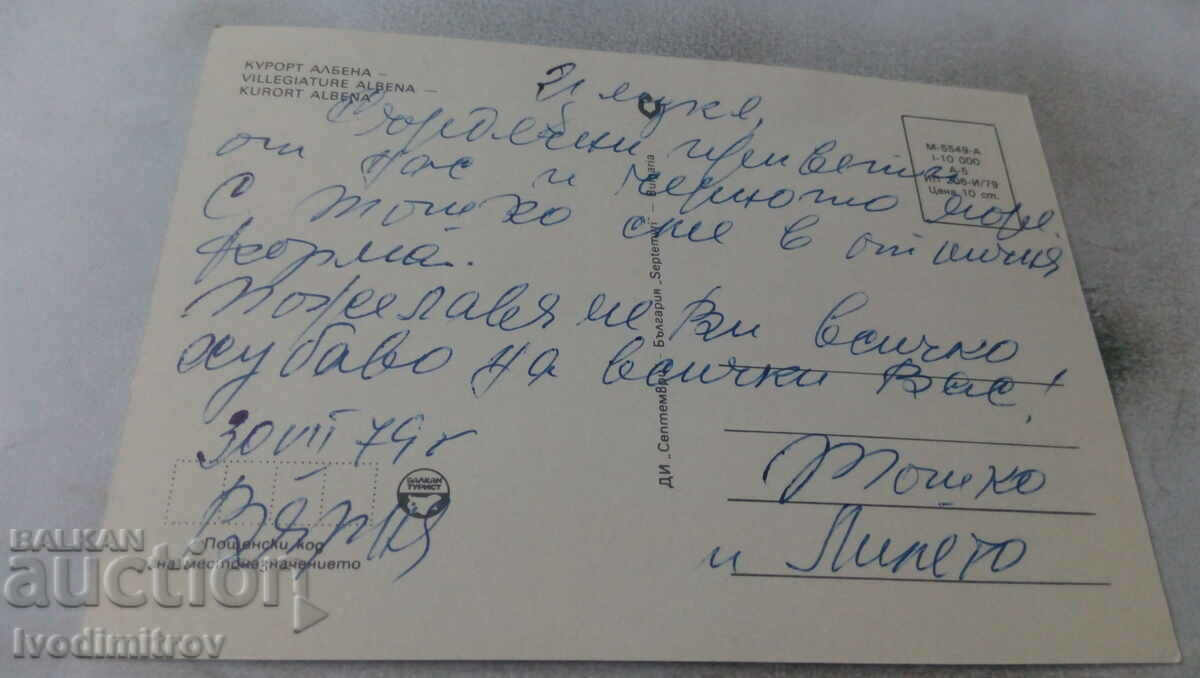 КУРОРТ АЛБЕНА –
VILLEGIATURE ALBENA –
KURORT ALBENA
Сърдечни привети
от нас и черното море.
С Тошко сме в отлична
форма.
Пожелавам Ви всичко
хубаво на всички Вас!
30 VII 79 г
Варна
Тошко
и Липето
М-5549-А
I-10 000
А-5
Цена 10 ст.
ДИ „Септември“ – България „Septemvri“ – Bulgaria
БАЛКАН
ТУРИСТ
Пощенски код
на местоназначението
BALKAN
auction
Ivodimitrov